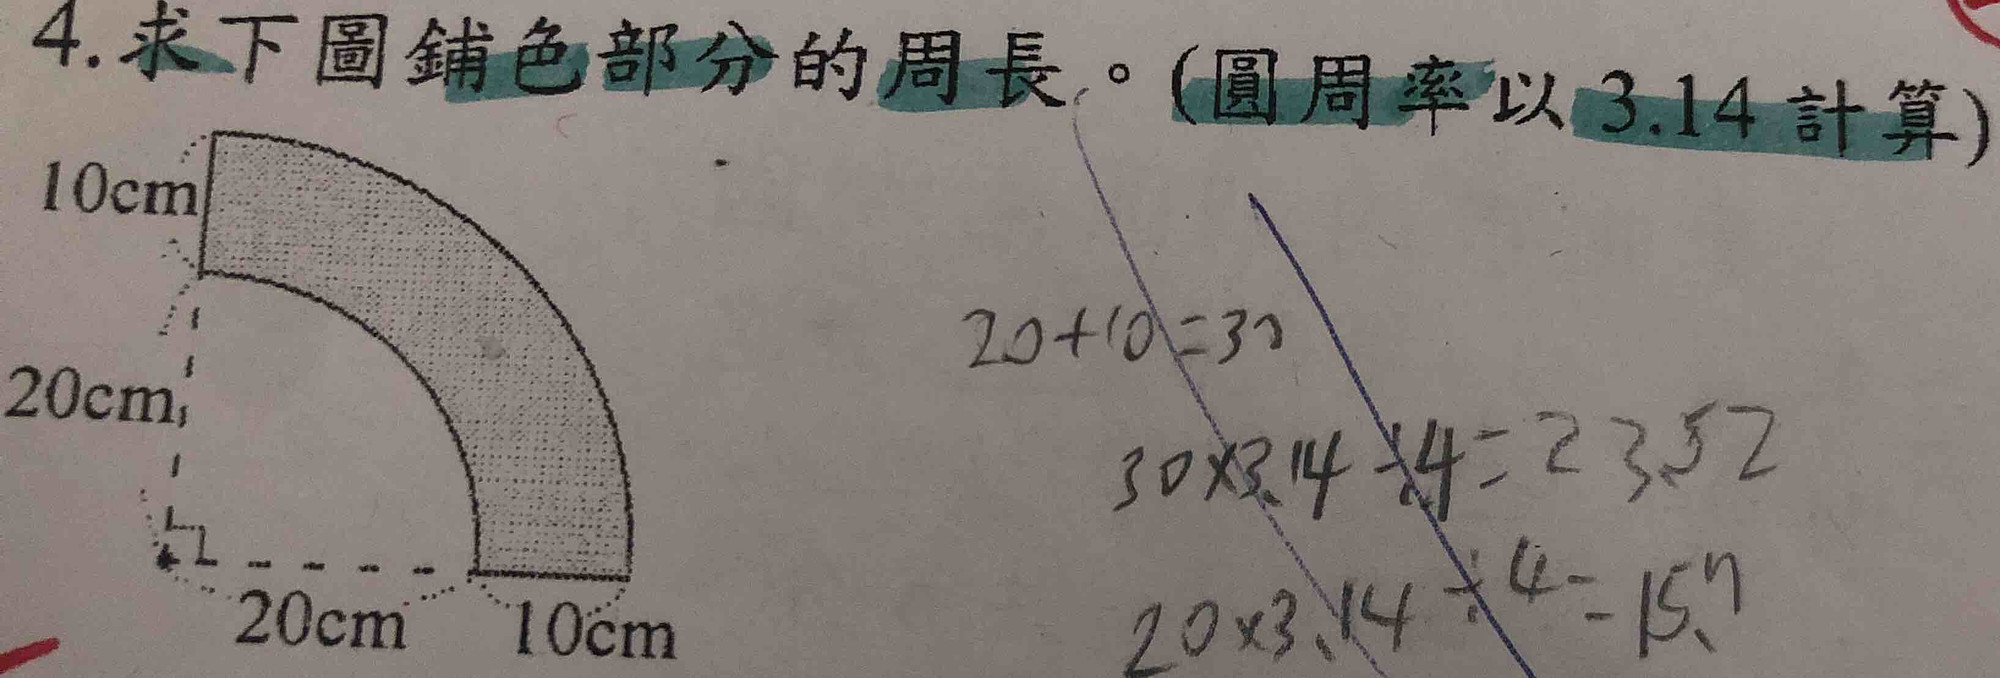 4.求下圖鋪色部分的周長。(圓周率以3.14計算)
10cm
20cm
20cm 10cm
20+10=30
30×3.14÷4=23.52
20×3.14÷4=15.7